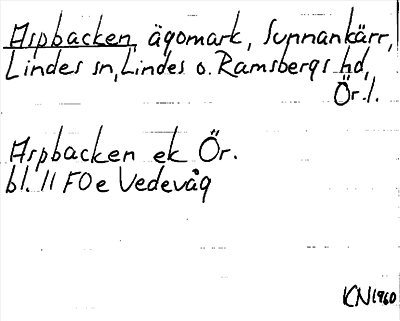 Aspbacken, ägomark, Sunnankärr,
Lindes sn, Lindes o. Ramsbergs hd,
Ör. l.
Aspbacken ek Ör.
bl. 11 F0e Vedevåg
KN 1960